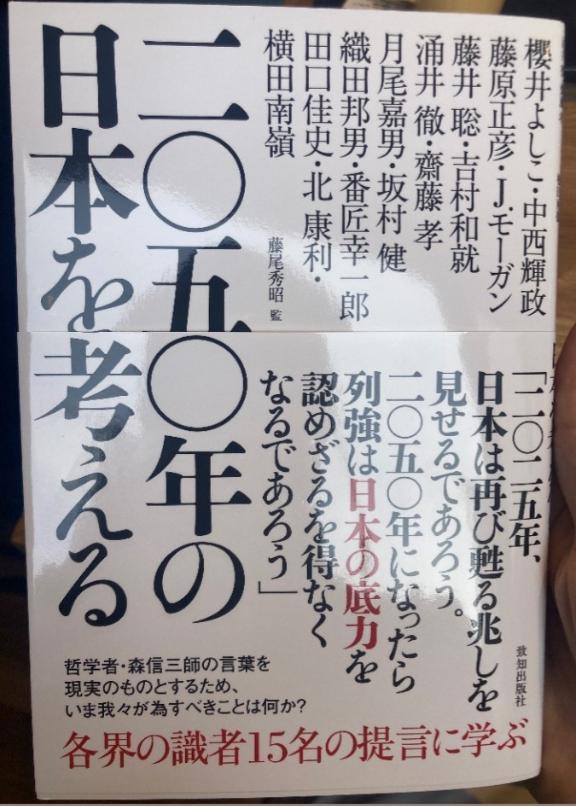 櫻井よしこ・中西輝政
藤原正彦・J.モーガン
藤井 聡・吉村和就
涌井 徹・齋藤 孝
月尾嘉男・坂村 健
織田邦男・番匠幸一郎
田口佳史・北 康利・
横田南嶺
藤尾秀昭 監
二〇五〇年の
日本を考える
「二〇二五年、
日本は再び甦る兆しを
見せるであろう。
二〇五〇年になったら
列強は日本の底力を
認めざるを得なく
なるであろう」
致知出版社
哲学者・森信三師の言葉を
現実のものとするため、
いま我々が為すべきことは何か?
各界の識者15名の提言に学ぶ